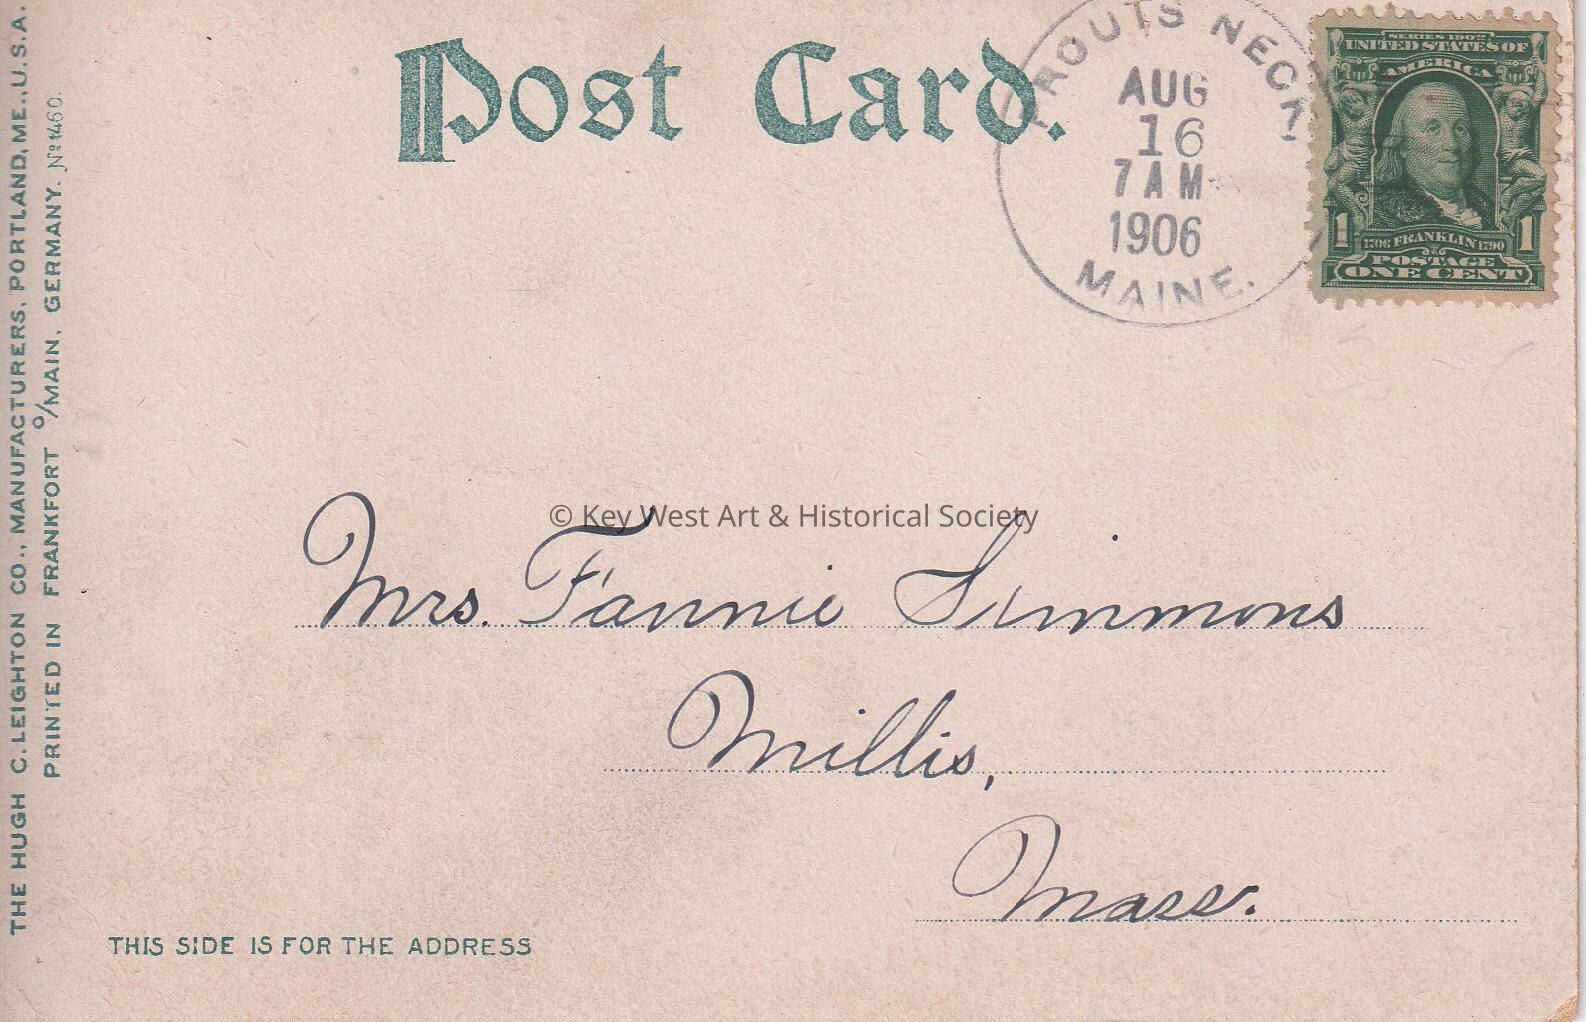 Post Card.
PROUTS NECK,
AUG
16
7 AM
1906
MAINE.
SERIES 1902
UNITED STATES OF
AMERICA
1 1
1706 FRANKLIN 1790
POSTAGE
ONE CENT
© Key West Art & Historical Society
Mrs. Fannie Simmons
Millis,
Mass.
THIS SIDE IS FOR THE ADDRESS
THE HUGH C. LEIGHTON CO., MANUFACTURERS, PORTLAND, ME., U.S.A.
PRINTED IN FRANKFORT O/MAIN, GERMANY. No 1460.